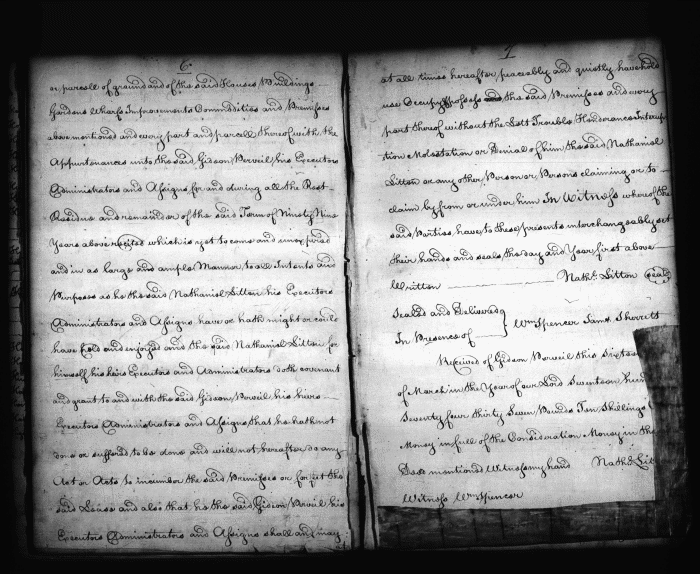 6
or parcell of ground and of the said Houses Buildings
Gardens Wharfs Improvements Commodities and Premisses
above mentioned and every part and parcell thereof with the
Appurtenances unto the said Gideon Perveil his Executors
Administrators and Assigns for and during all the Rest
Residue and remainder of the said Term of Ninety Nine
Years above recited which is yet to come and unexpired
and in as large and ample Manner to all Intents and
Purposes as he the said Nathaniel Sitton his Executors
Administrators and Assigns have or hath might or could
have hold and enjoyed and the said Nathaniel Sitton for
himself his heirs Executors and Administrators doth covenant
and grant to and with the said Gideon Perveil his heirs
Executors Administrators and Assigns that he hath not
done or suffered to be done and will not hereafter do any
Act or Acts to incumber the said Premisses or forfeit the
said Lease and also that he the said Gideon Perveil his
Executors Administrators and Assigns shall and may
7
at all times hereafter peaceably and quietly have hold
use Occupy Possess the said Premisses and every
part thereof without the Lett Trouble Hinderances Interup
tion Molestation or Denial of him the said Nathaniel
Sitton or any other Person or Persons claiming or to
claim by from or under him In Witness whereof the
said Parties have to these presents interchangeably set
their hands and seals the day and Year first above
Written Nathl. Sitton seal
Sealed and Delivered
In Presence of Wm Spencer Saml. Sherrett
Received of Gideon Perveil this Sixteen
of March in the Year of our Lord Seventeen hund
Seventy four thirty Seven Pounds Ten Shillings
Money in full of the Consideration Money in the
Deed mentioned Witness my hand Nathl. Sit
Witness Wm Spencer